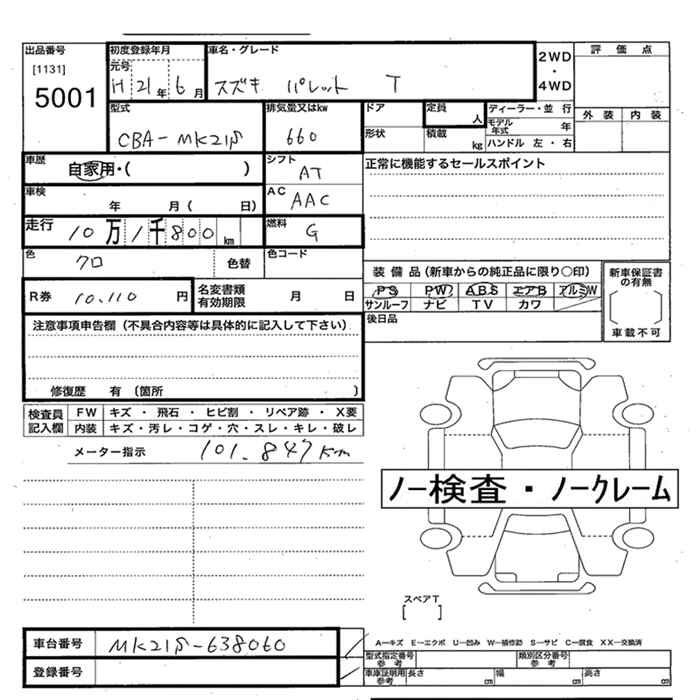 出品番号 初度登録年月 車名・グレード 2WD ・ 4WD 評価点
[1131] 元号
5001 H 21 年 6 月 スズキ パレット T
型式 排気量又はkw ドア 定員 人 ディーラー・並 行 外 装 内 装
CBA-MK21S 660 形状 積載 kg モデル年式 年
ハンドル 左・右
車歴 自家用・( ) シフト AT 正常に機能するセールスポイント
車検 年 月( 日) AC AAC
走行 10万1千800km 燃料 G
色 クロ 色替 色コード
装備品(新車からの純正品に限り○印) 新車保証書の有無
R券 10,110 円 名変書類有効期限 月 日 PS PW ABS エアB アルミW
サンルーフ ナビ TV カワ
注意事項申告欄(不具合内容等は具体的に記入して下さい) 後日品 車載不可
修復歴 有 (箇所 )
検査員記入欄 FW キズ ・ 飛石 ・ ヒビ割 ・ リペア跡 ・ X要
内装 キズ・汚レ・コゲ・穴・スレ・キレ・破レ
メーター指示 101,847km
ノー検査・ノークレーム
スペアT
[ ]
車台番号 MK21S-638060 A-キズ E-エクボ U-凹み W-補修跡 S-サビ C-腐食 XX-交換済
型式指定番号参考 類別区分番号参考
登録番号 車庫証明用参考 長さ cm 幅 cm 高さ cm